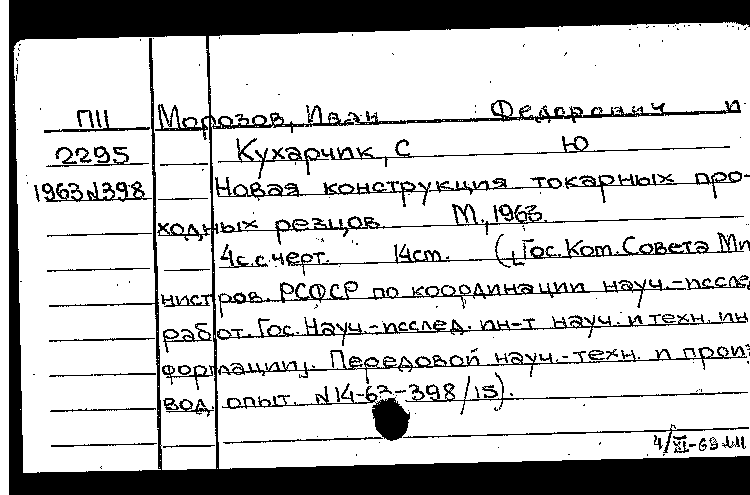 ПII Морозов, Иван Федорович и
2295 Кухарчик, С Ю
1963 N398 Новая конструкция токарных про-
ходных резцов. М., 1963.
4с. с черт. 14 см. ([Гос. Ком. Совета Ми
нистров. РСФСР по координации науч.-исслед
работ. Гос. Науч.-исслед. ин-т науч. и техн. ин
формации]. Передовой науч.-техн. и произ
вод. опыт. N14-63-398/15).